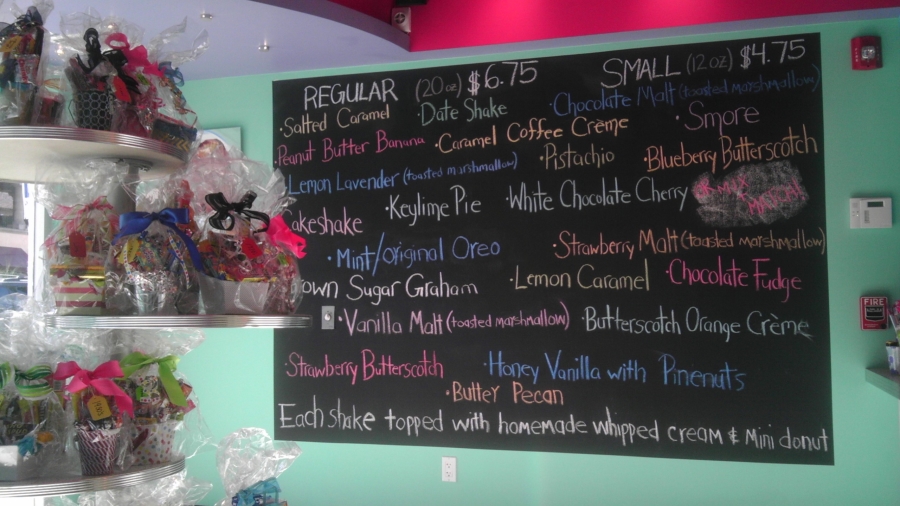 REGULAR (20 oz) $6.75 SMALL (12 oz) $4.75
·Salted Caramel ·Date Shake ·Chocolate Malt (toasted marshmallow)
·Smore
·Peanut Butter Banana ·Caramel Coffee Crème
·Pistachio ·Blueberry Butterscotch
·Lemon Lavender (toasted marshmallow)
Cakeshake ·Keylime Pie ·White Chocolate Cherry
·Mint/Original Oreo ·Strawberry Malt (toasted marshmallow)
own Sugar Graham ·Lemon Caramel ·Chocolate Fudge
·Vanilla Malt (toasted marshmallow) ·Butterscotch Orange Crème
·Strawberry Butterscotch ·Honey Vanilla with Pinenuts
·Butter Pecan
Each shake topped with homemade whipped cream & Mini donut
FIRE